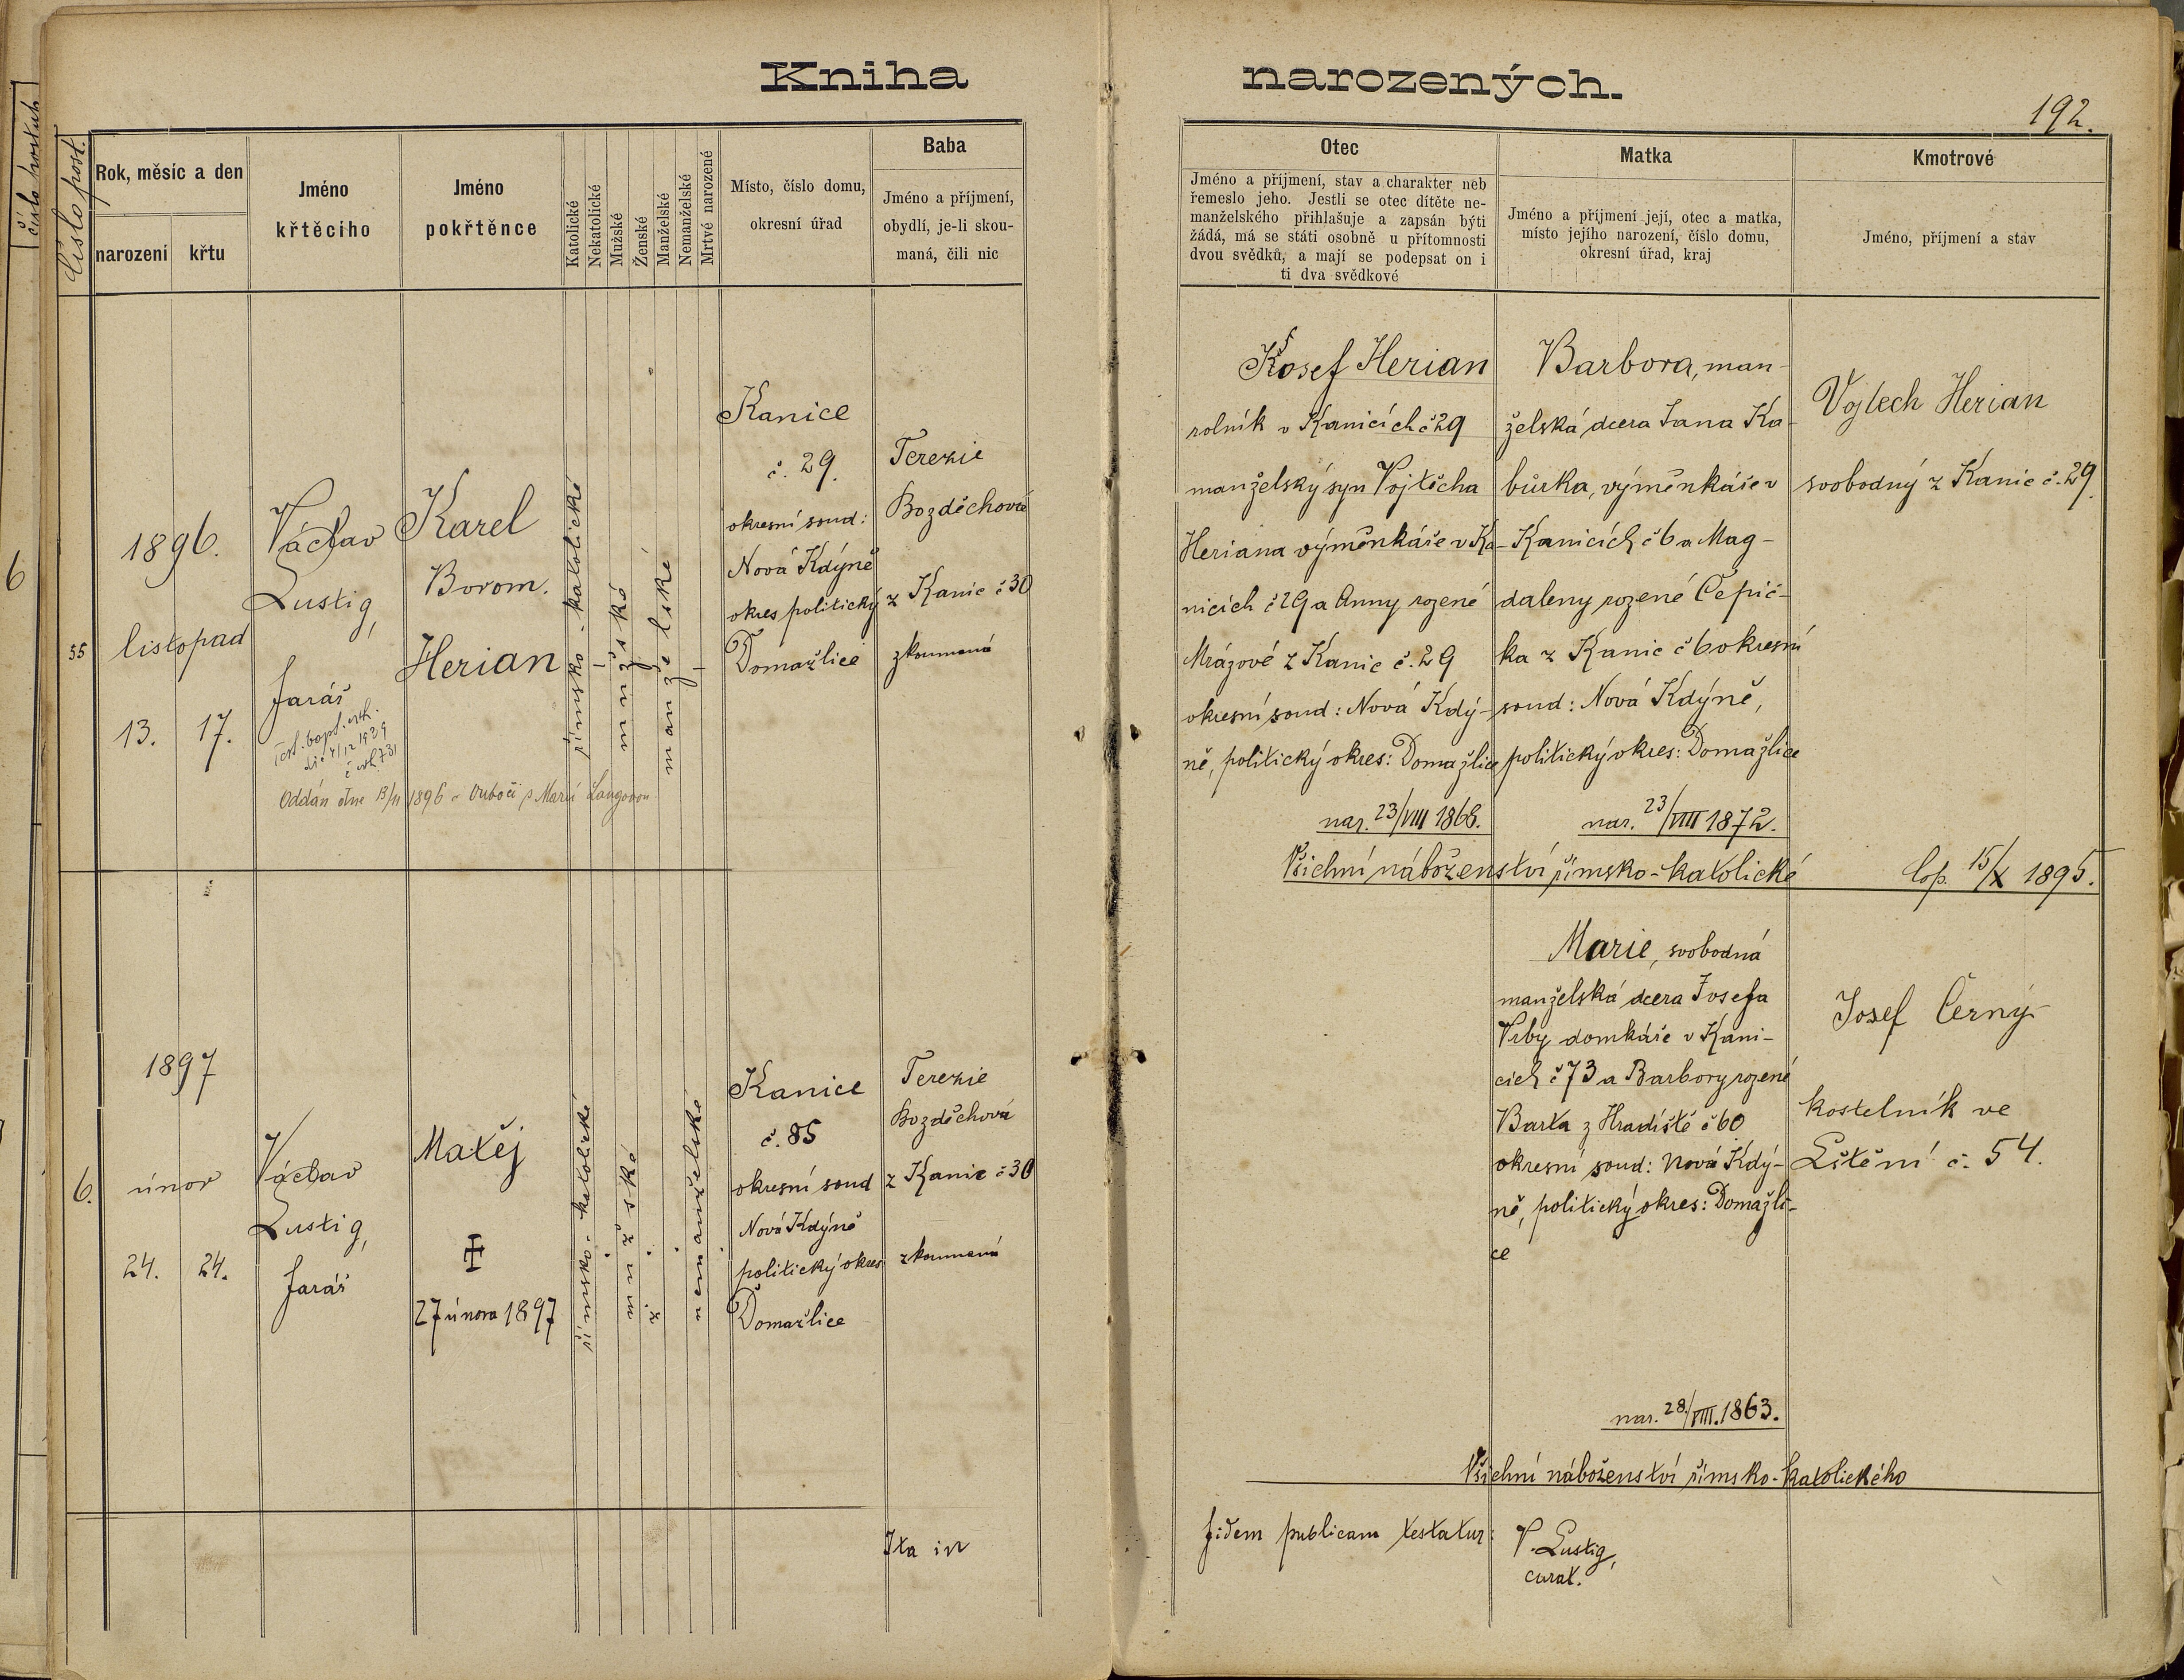 Kniha narozených.
192.
číslo post.
Rok, měsíc a den
narození
křtu
Jméno
křtěcího
Jméno
pokřtěnce
Katolické
Nekatolické
Mužské
Ženské
Manželské
Nemanželské
Mrtvé narozené
Místo, číslo domu,
okresní úřad
Baba
Jméno a příjmení,
obydlí, je-li skou-
maná, čili nic
Otec
Jméno a příjmení, stav a charakter neb
řemeslo jeho. Jestli se otec dítěte ne-
manželského přihlašuje a zapsán býti
žádá, má se státi osobně u přítomnosti
dvou svědků, a mají se podepsat on i
ti dva svědkové
Matka
Jméno a příjmení její, otec a matka,
místo jejího narození, číslo domu,
okresní úřad, kraj
Kmotrové
Jméno, příjmení a stav
55
1896.
listopad
13.
17.
Václav
Lustig,
farář
Karel
Borom.
Herian
římsko-katolické
mužské
manželské
Kanice
č. 29.
okresní soud:
Nová Kdýně
okres politický
Domažlice
Terezie
Bozděchová
z Kanic č 30
zkoumaná
Josef Herian
rolník v Kanicích č 29
manželský syn Vojtěcha
Heriana výměnkáře v Ka-
nicích č 29 a Anny rozené
Mrázové z Kanic č. 29
okresní soud: Nová Kdý-
ně, politický okres: Domažlice
nar. 23/VIII 1868.
Barbora, man-
želská dcera Jana Ka-
bůrka, výměnkáře v
Kanicích č 6 a Mag-
daleny rozené Čepič-
ka z Kanic č 6 okresní
soud: Nová Kdýně,
politický okres: Domažlice
nar. 23/VIII 1872.
Vojtech Herian
svobodný z Kanic č. 29.
Všichni náboženství římsko-katolické
Cop. 15/X 1895.
Oddán dne 13/11 1896 s Marií Langovou
6.
1897
únor
24.
24.
Václav
Lustig,
farář
Matěj
27 února 1897
římsko-katolické
mužské
nemanželské
Kanice
č. 85
okresní soud
Nová Kdýně
politický okres
Domažlice
Terezie
Bozděchová
z Kanic č 30
zkoumaná
Marie, svobodná
manželská dcera Josefa
Vrby domkáře v Kani-
cích č 73 a Barbory rozené
Barta z Hradiště č 60
okresní soud: Nová Kdý-
ně, politický okres: Domažli-
ce
nar. 28./VIII. 1863.
Josef Černý
kostelník ve
Lštění č. 54.
Všichni náboženství římsko-katolického
Ita in fidem publicam testatur:
V. Lustig,
curat.
6